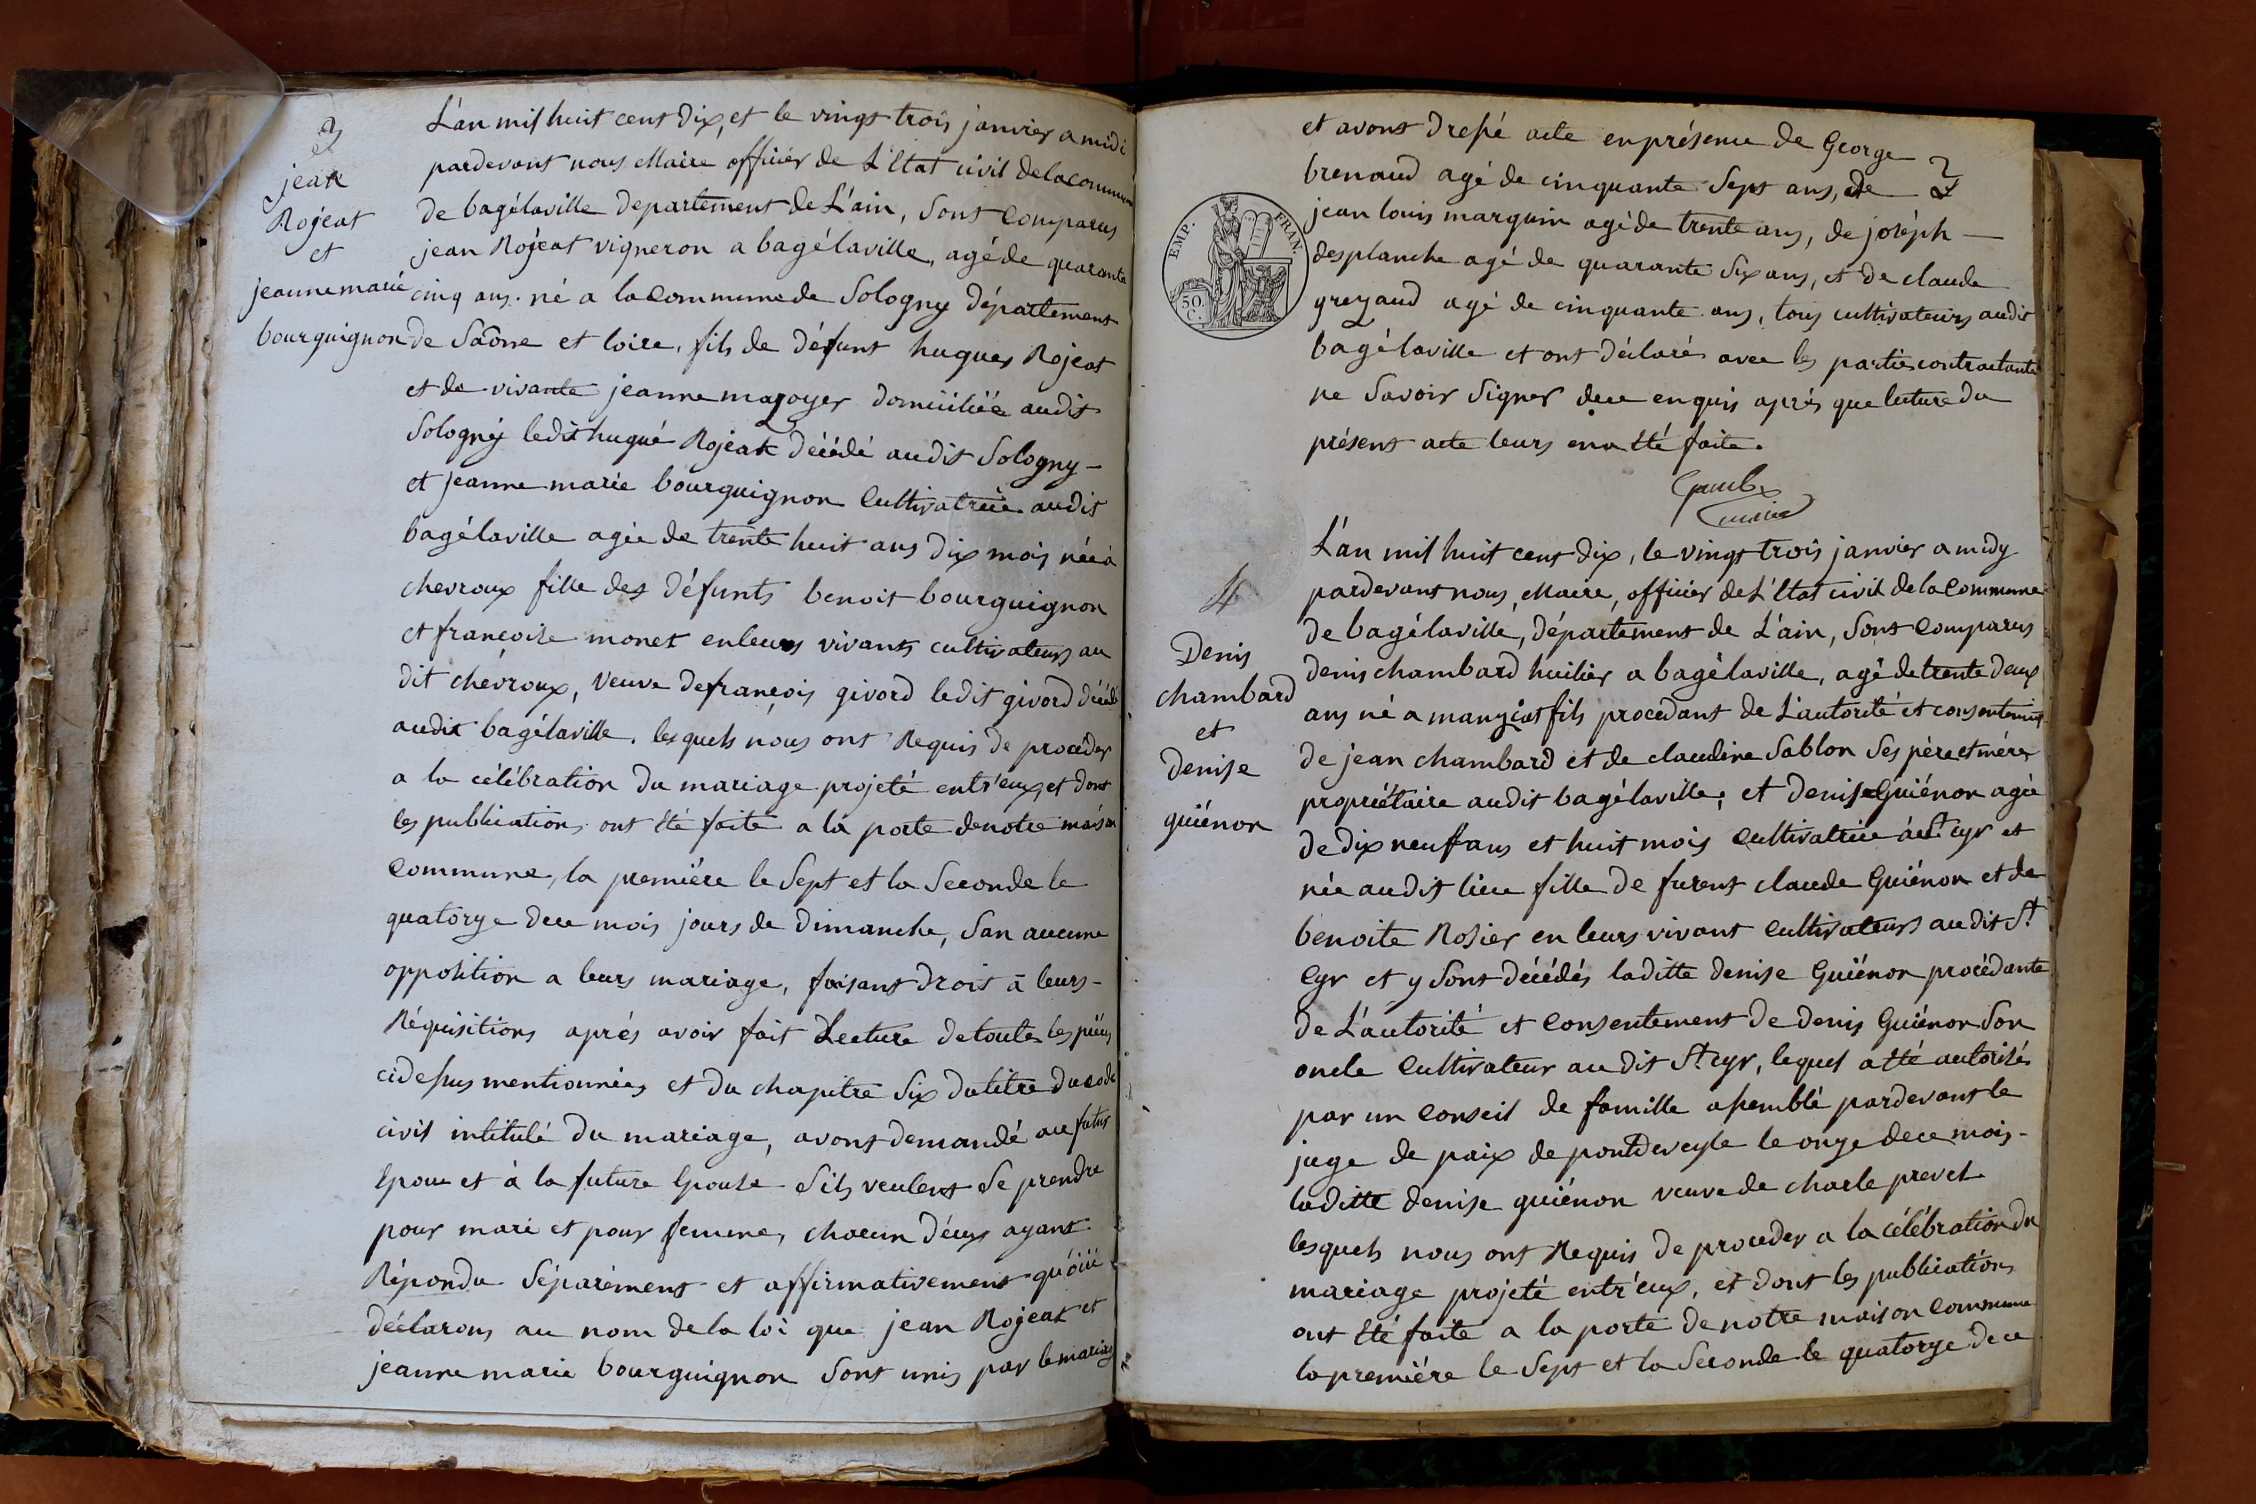 3
jean
Rojeat
et
jeanne marie
bourguignon
L'an mil huit cent dix, et le vingt trois janvier a midi
pardevant nous Maire officier de L'Etat civil de la commune
de bagélaville departement de L'ain, Sont Comparus
jean Rojeat vigneron a bagélaville, agé de quarante
cinq ans. né a la Commune de Sologny département
de Saône et loire, fils de défunt hugues Rojeat
et de vivante jeanne mazoyer domiciliée audit
Sologny ledit hugué Rojeat décédé audit Sologny -
et jeanne marie bourguignon Cultivatrice audit
bagélaville agée de trente huit ans dix mois née à
chevroux fille des défunts benoit bourguignon
et francoise monet en leurs vivants cultivateurs au
dit chévroux, veuve de françois givord ledit givord décédé
audit bagélaville. lesquels nous ont Requis de procéder
a la célébration du mariage projeté entr'eux, et dont
les publications ont été faite a la porte de notre maison
Commune, la premiére le Sept et la Seconde le
quatorze de ce mois jours de Dimanche, San aucune
opposition a leurs mariage, faisant droit à leurs -
Réquisitions aprés avoir fait Lecture de toutes les piéces
cidessus mentionnées et du chapitre Six du titre du code
civil intitulé du mariage, avons demandé au futur
Epoux et à la future Epouse Sils veulent Se prendre
pour mari et pour femme, chacun d'eux ayant
Répondu Séparément et affirmativement qu'oüi
déclarons au nom de la loi que jean Rojeat et
jeanne marie bourguignon Sont unis par le mariage
et avons dressé acte en présence de George
brenaud agé de cinquante Sept ans, de
jean louis marguin agé de trente ans, de joséph —
desplanche agé de quarante Six ans, et de claude
greyaud agé de cinquante ans, tous cultivateurs audit
bagélaville et ont déclaré avec les parties contractante
ne Savoir Signer de ce enquis aprés que lecture du
présent acte leurs en a été faite.
maire
EMP. FRAN.
50. C.
4
Denis
chambard
et
denise
guiénon
L'an mil huit cent dix, le vingt trois janvier a midy
pardevant nous, Maire, officier de L'Etat civil de la Commune
de bagélaville, département de L'ain, Sont Comparus
denis chambard huilier a bagélaville, agé de trente deux
ans né a manziat fils procedant de L'autorité et consentement
de jean chambard et de claudine Sablon Ses père et mére
propriétaire audit bagélaville, et denise Guiénon agée
de dix neuf ans et huit mois Cultivatrice à St cyr et
née audit lieu fille de furent claude Guiénon et de
benoite Rosier en leurs vivant Cultivateurs audit St
Cyr et y Sont décédés laditte denise Guiénon procédante
de L'autorité et Consentement de denis Guiénon Son
oncle Cultivateur au dit St cyr, lequel a été autorisé
par un Conseil de famille assemblé pardevant le
juge de paix de pontdeveyle le onze de ce mois -
laditte denise guiénon veuve de charle prevel
lesquels nous ont Requis de proceder a la célébration du
mariage projeté entr'eux, et dont les publications
ont été faite a la porte de notre maison Commune
la premiére le Sept et la Seconde le quatorze de ce